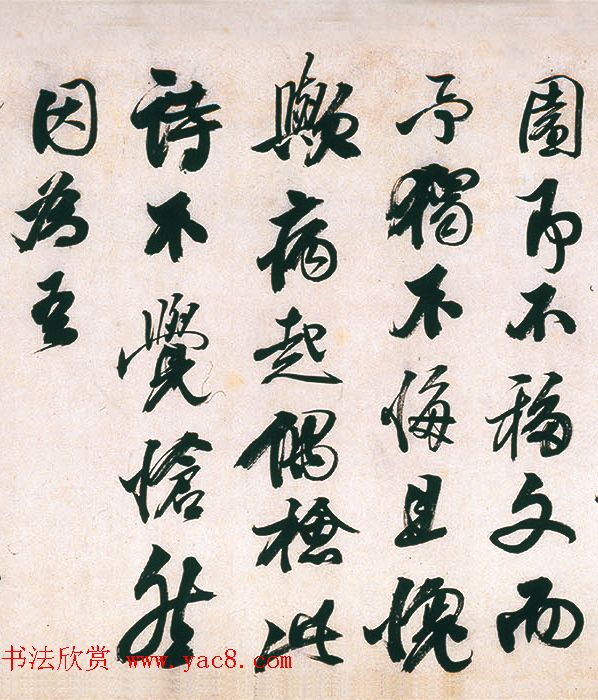 園即不稱文而
予獨不悔且愧
歟病起偶檢此
詩不覺愴然
因為
书法欣赏 www.yac8.com